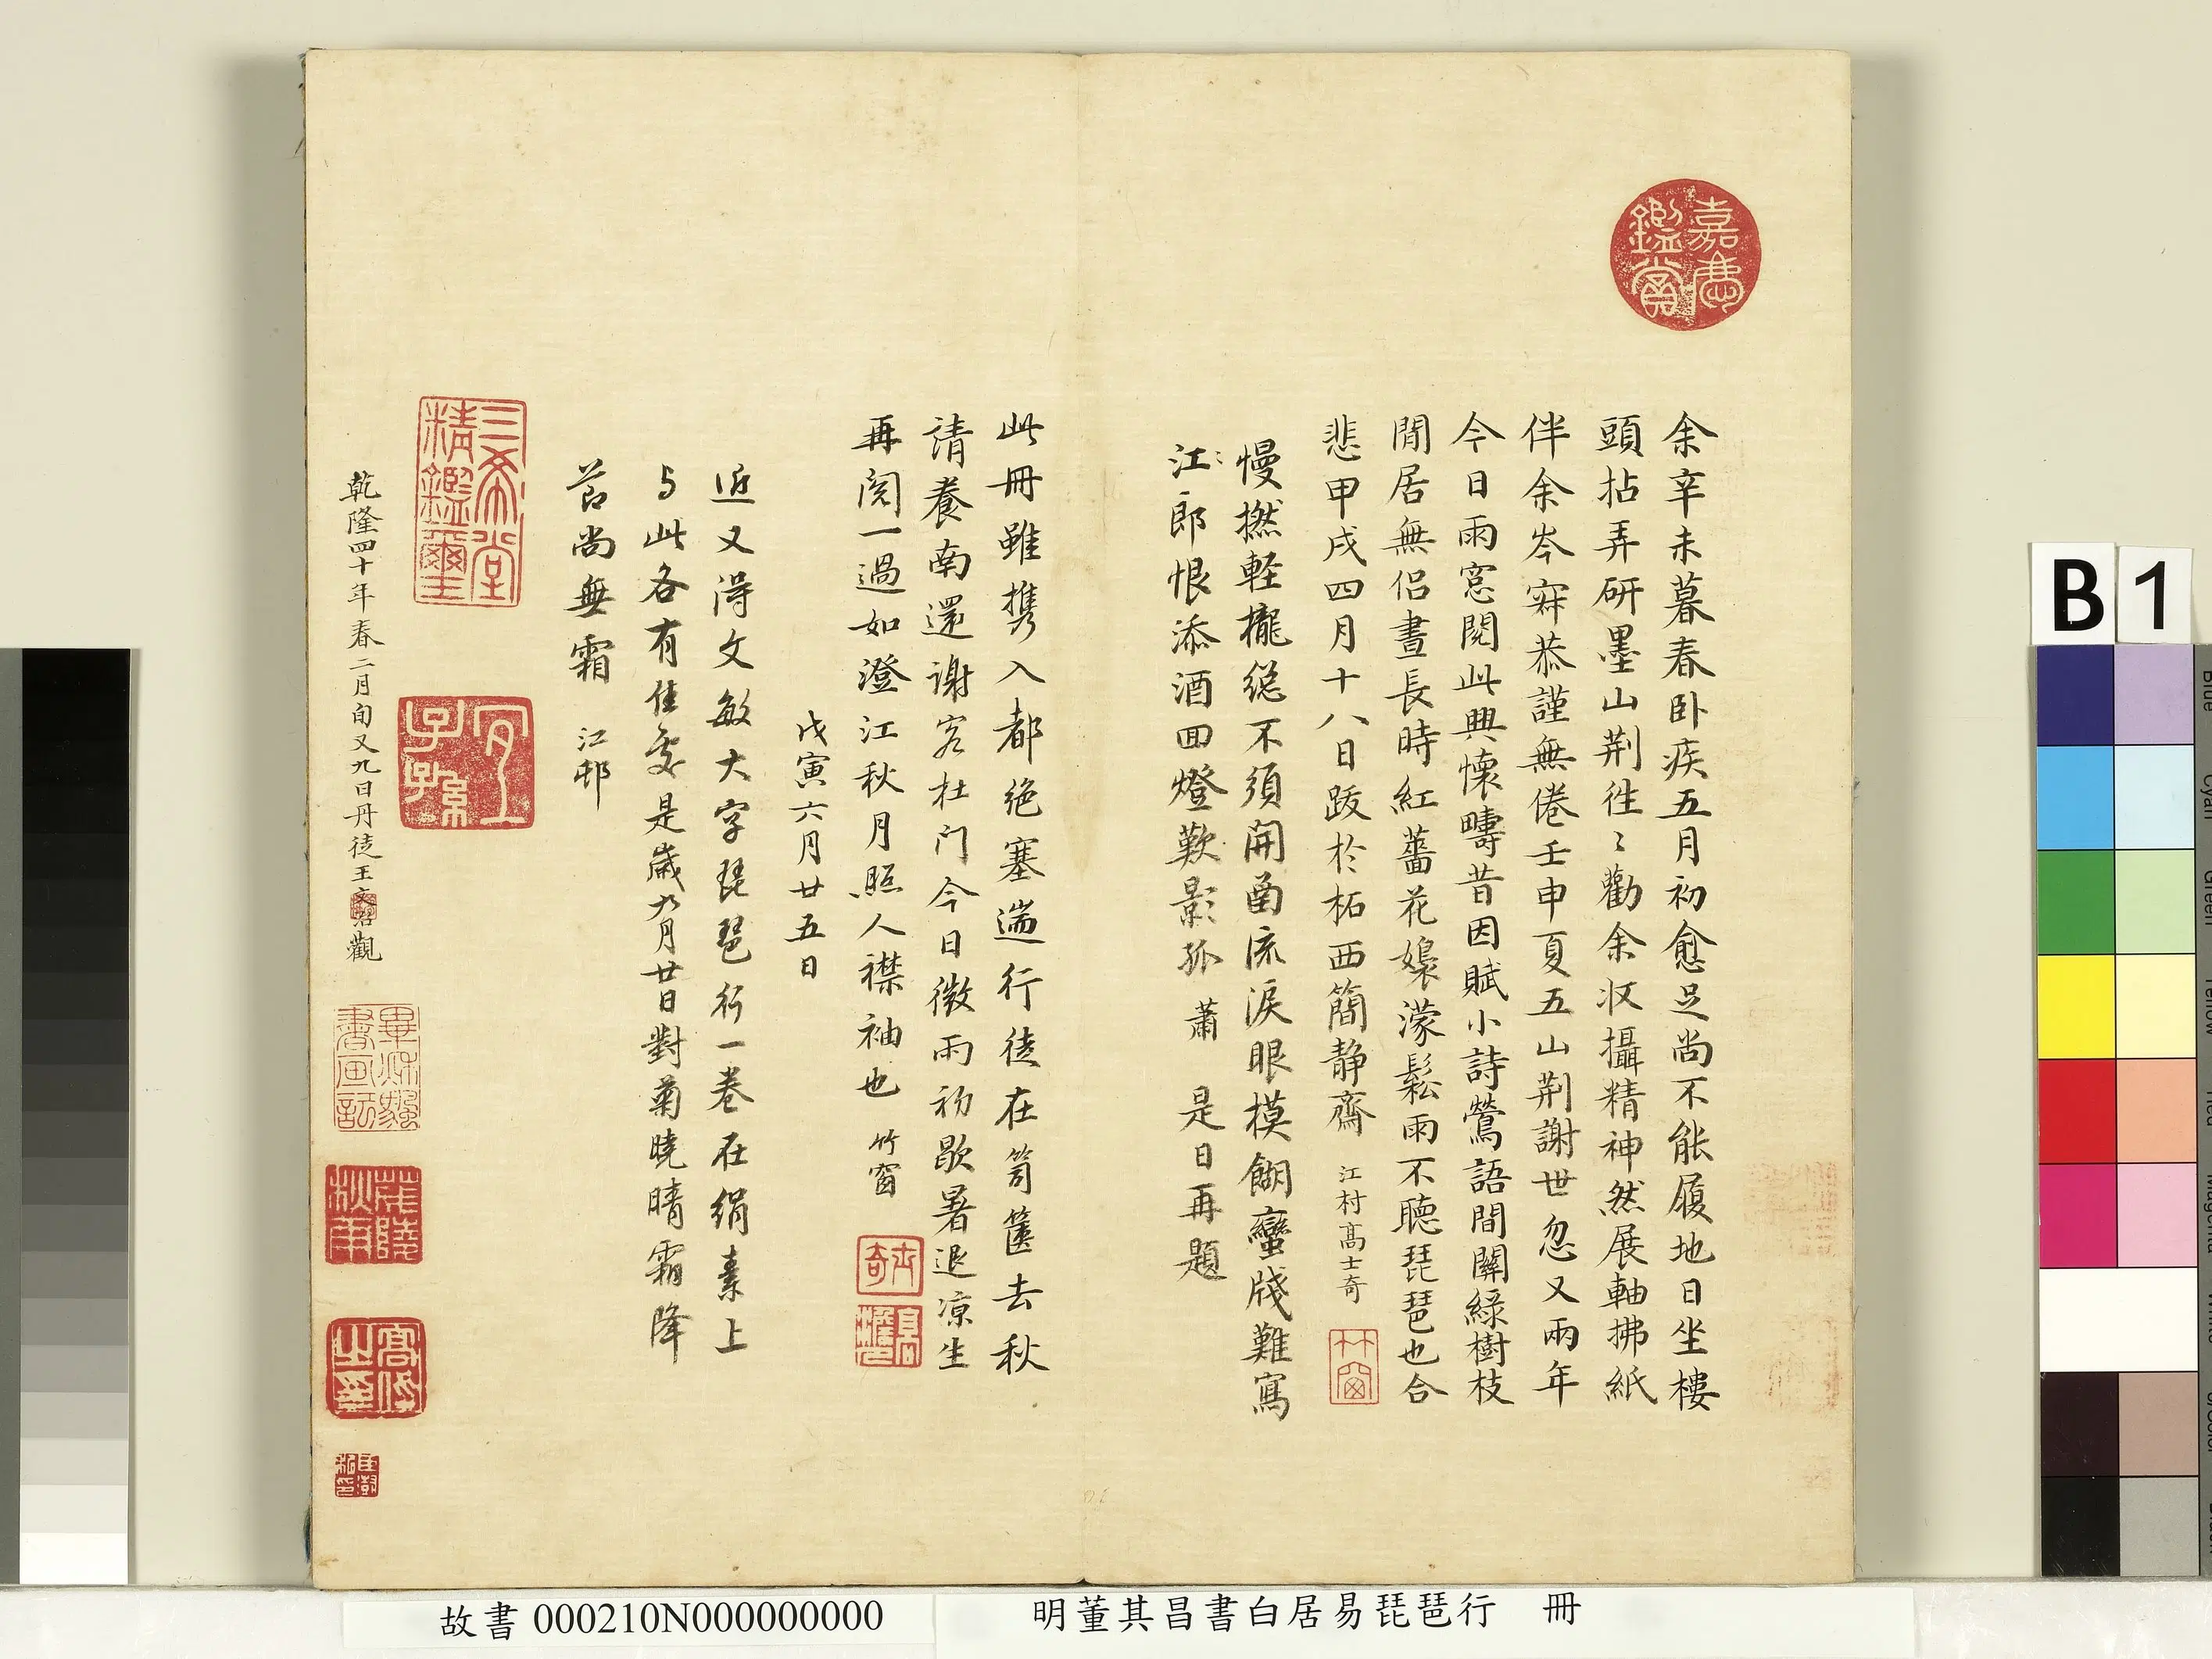 嘉慶鑑賞
余辛未暮春卧疾五月初愈足尚不能履地日坐樓
頭拈弄研墨山荆徃〻勸余收攝精神然展軸拂紙
伴余岑寂恭謹無倦壬申夏五山荆謝世忽又兩年
今日雨窓閱此興懷疇昔因賦小詩鶯語間關綠樹枝
閒居無侣晝長時紅蔷花嬝濛鬆雨不聽琵琶也合
悲甲戌四月十八日跋於柘西簡靜齋 江村高士奇
竹窗
慢撚軽攏總不須開圅流淚眼模餬蠻牋難寫
江郎恨添酒回燈歎影孤 蕭〻是日再題
此冊雖携入都絶塞遄行徒在笥篋去秋
請養南還謝客杜门今日微雨初歇暑退凉生
再閱一過如澄江秋月照人襟袖也 竹窗
士奇
戊寅六月廿五日
近又淂文敏大字琵琶行一卷在絹素上
与此各有佳處是歲九月廿日對菊曉晴霜降
莭尚無霜 江邨
三希堂精鑑璽
宜子孫
乾隆四十年春二月旬又九日丹徒王文治觀
畢秋颿書画記
高氏之印
故書 000210N000000000
明董其昌書白居易琵琶行 冊
B 1